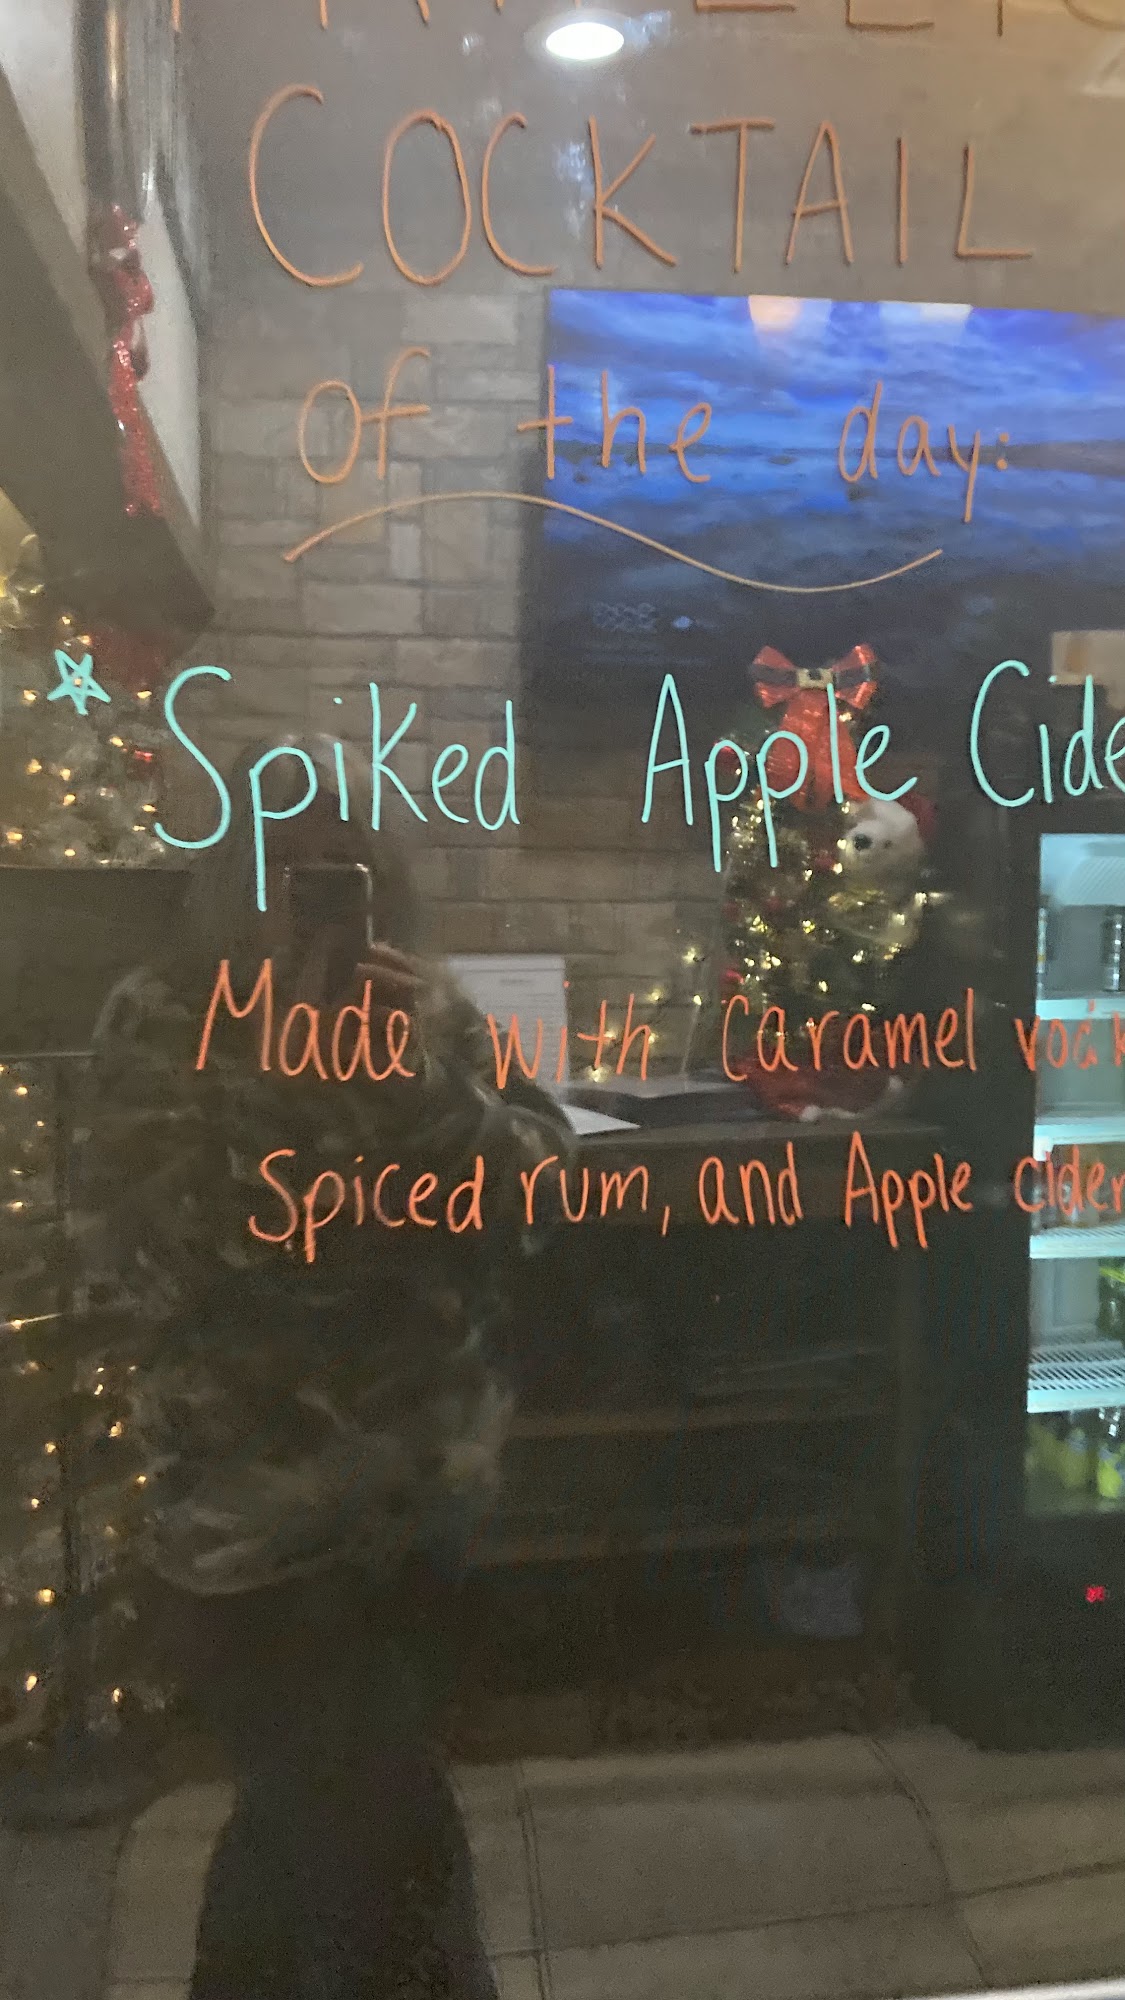 COCKTAIL
of the day:
Spiked Apple Cide
Made with Caramel vodk
Spiced rum, and Apple cider